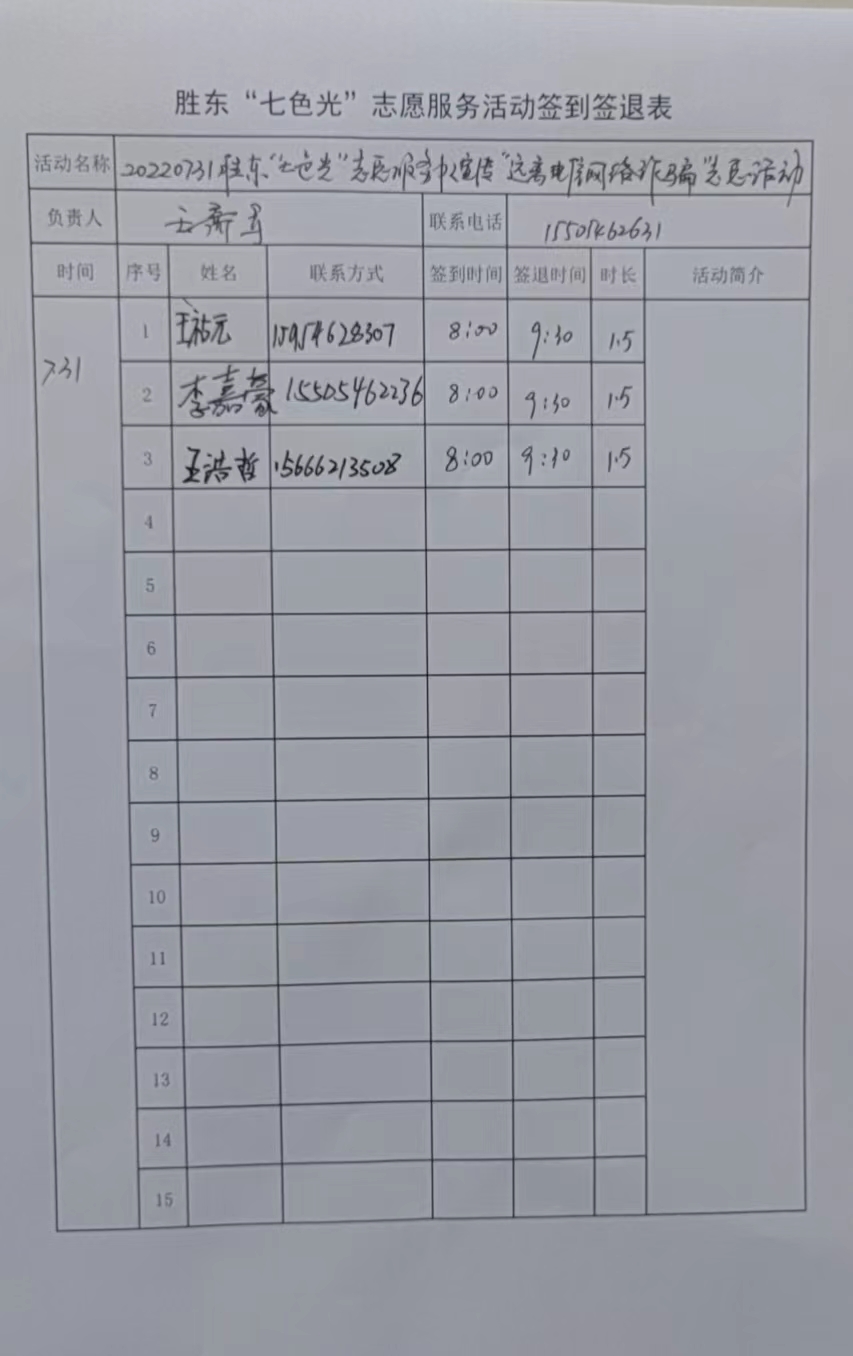 胜东“七色光”志愿服务活动签到签退表
活动名称 20220731胜东“七色光”志愿服务队宣传“远离电信网络诈骗”志愿活动
负责人 联系电话 15505462631
时间 序号 姓名 联系方式 签到时间 签退时间 时长 活动简介
7.31
1 15954628307 8:00 9:30 1.5
2 李嘉豪 15505462236 8:00 9:30 1.5
3 王浩哲 15666213508 8:00 9:30 1.5
4
5
6
7
8
9
10
11
12
13
14
15